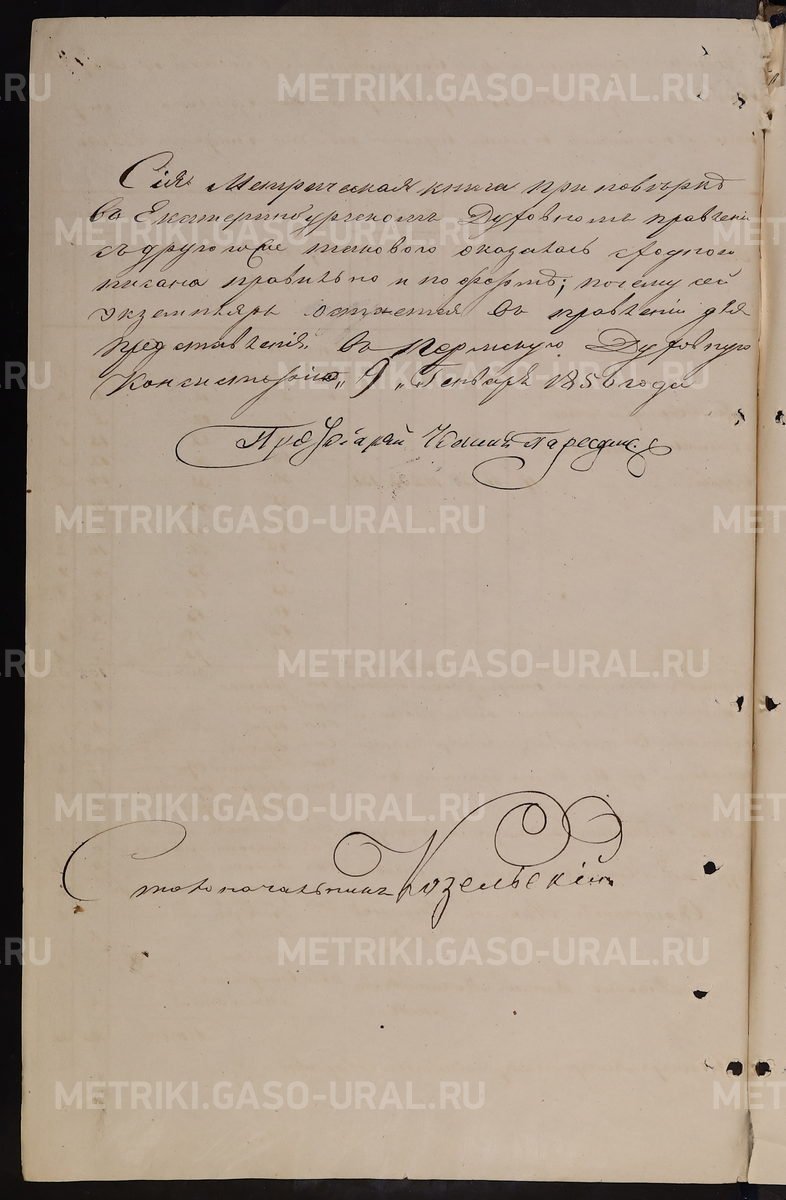 Сія Метрическая книга при повѣркѣ
въ Екатеринбургскомъ Духовномъ правленіи
съ другою экз. таковою оказалась сходною
писана правильно и по формѣ; почему сей
экземпляръ остается въ правленіи для
представленія въ Пермскую Духовную
Консисторію „ 9 „ Генваря 1856 года
Столоначальникъ Козельскій
METRIKI.GASO-URAL.RU